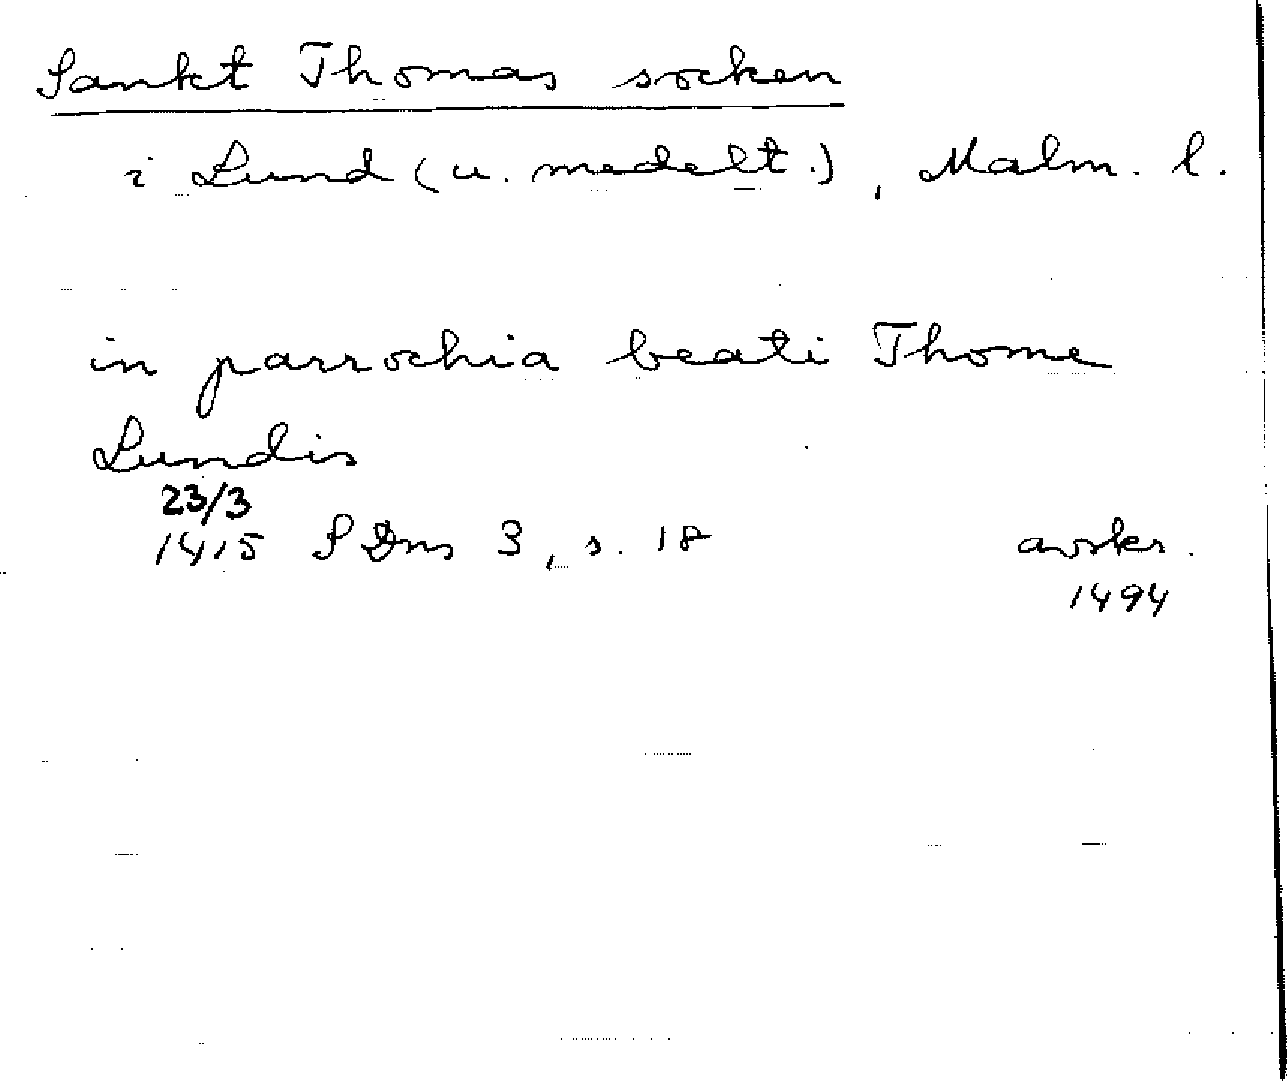 Sankt Thomas socken
i Lund (u. medelt.), Malm. l.
in parrochia beati Thome
Lundis
23/3
1415 SDns 3, s. 18 avskr.
1494